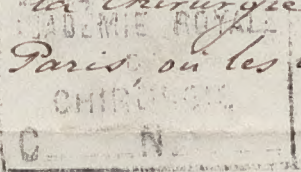 la chirurgie
ADEMIE ROYALE
Paris, où les
CHIRURGIE
C N